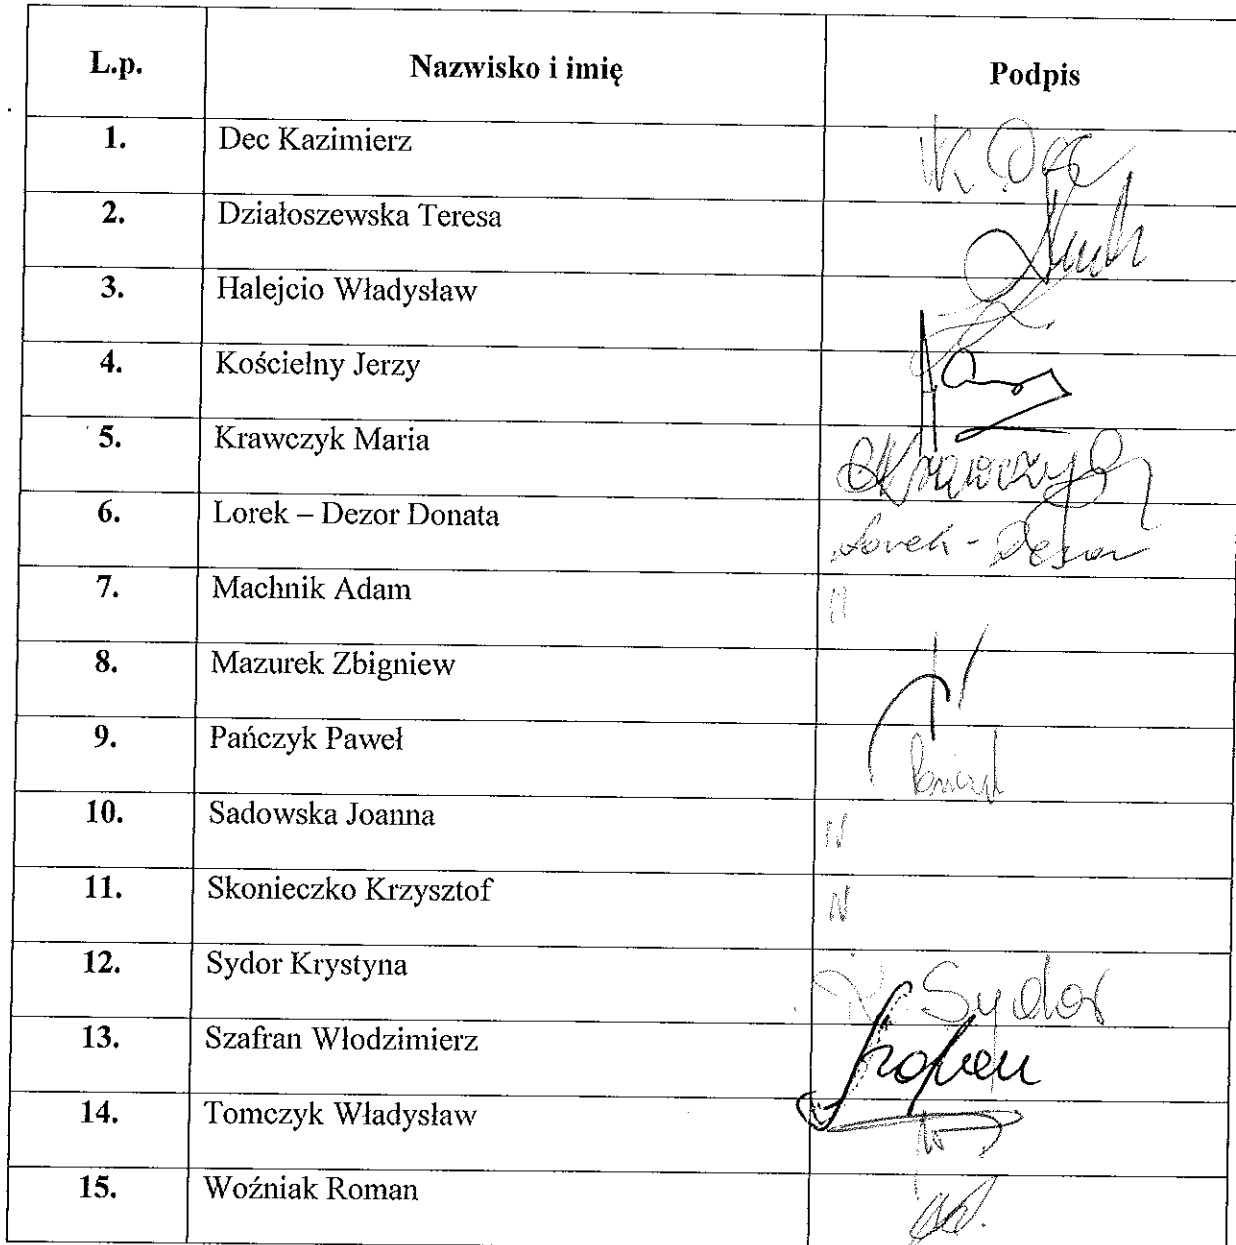 L.p. Nazwisko i imię Podpis
1. Dec Kazimierz K Dec
2. Działoszewska Teresa
3. Halejcio Władysław
4. Kościelny Jerzy
5. Krawczyk Maria Krawczyk
6. Lorek – Dezor Donata Lorek - Dezor
7. Machnik Adam
8. Mazurek Zbigniew
9. Pańczyk Paweł
10. Sadowska Joanna N
11. Skonieczko Krzysztof N
12. Sydor Krystyna K. Sydor
13. Szafran Włodzimierz
14. Tomczyk Władysław
15. Woźniak Roman